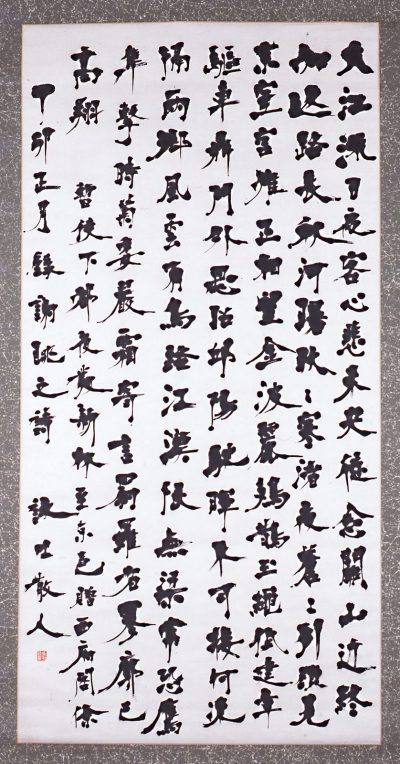 大江流日夜客心悲未央徒念關山近終
知返路長秋河曙耿〻寒渚夜蒼〻引領見
京室宮雉正相望金波麗鳷鵲玉繩低建章
驅車鼎門外思昭邱陽馳暉不可接何況
隔兩鄉風雲有鳥路江漢限無梁常恐鷹
隼擊時菊委嚴霜寄言罻羅者寥廓已
高翔 暫使下都夜發新林至京邑贈西府同僚
丁卯正月錄謝朓之詩 散人